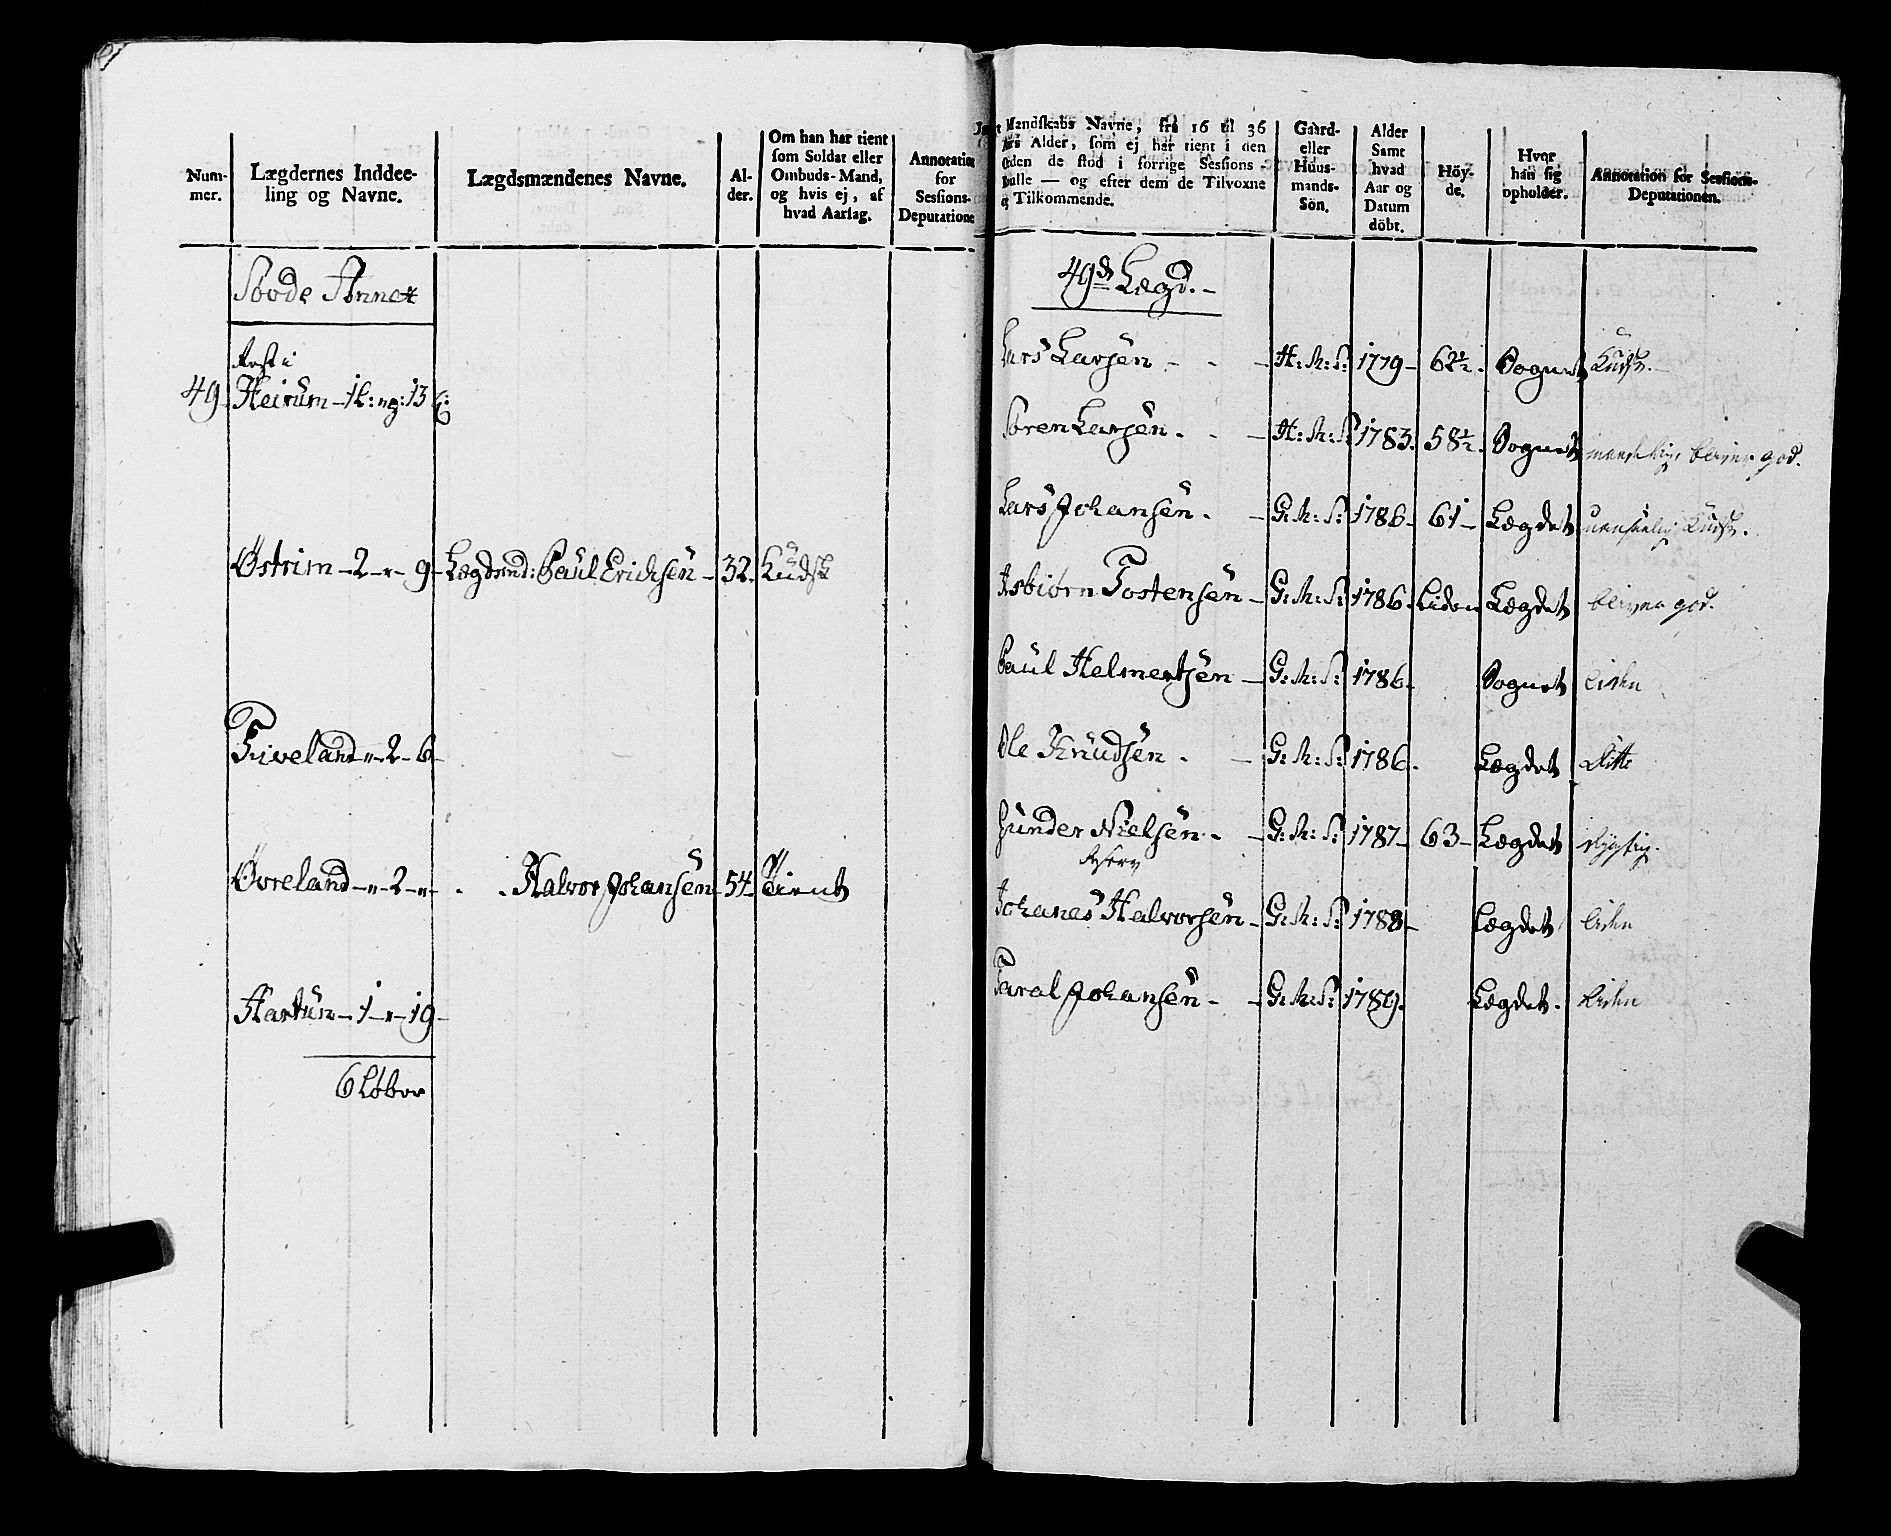 Num-
mer.
Lægdernes Inddee-
ling og Navne.
Lægdsmændenes Navne.
Al-
der.
Om han har tient
som Soldat eller
Ombuds-Mand,
og hvis ej, af
hvad Aarsag.
Annotation
for
Sessions-
Deputationen
Søvde Annex
49
Heirum - 1 L: og: 13
Østrim - 2 - " - 9 - Lægdsmd: Paul Erichsen - 32. Kudsk
Tiveland - " - 2 - 6 -
Øvreland - " - 2 - " - Halvor Johansen 54 Tient
Hartun - 1 - " - 19 -
6 Løber
Mandskabs Navne, fra 16 til 36
Aars Alder, som ej har tient i den
Orden de stod i forrige Sessions
Rulle — og efter dem de Tilvoxne
og Tilkommende.
Gaard-
eller
Huus-
mands-
Sön.
Alder
Samt
hvad
Aar og
Datum
döbt.
Höy-
de.
Hvor
han sig
opholder.
Annotation for Sessions-
Deputationen.
49de Lægd. -
Lars Larsen - - - H: M: S: 1779 - 62½. Sognet Kudsk. -
Søren Larsen. - - H: M: S: 1783. 58½. Sognet bliver god.
Lars Johansen. - G: M: S: 1786 - 61 - Lægdet Kudsk.
Asbiørn Tostensen - G: M: S: 1786. Liden Lægdet bliver god.
Paul Helmertsen - G: M: S: 1786. Sognet liden
Ole Knudsen. - G: M: S: 1786. Lægdet Ditto
Gunder Nielsen. - G: M: S: 1787 - 63 - Lægdet dygtig.
Johanes Halvorsen - G: M: S: 1788 - Lægdet liden
Taral Johansen - - G: M: S: 1789. Lægdet. liden